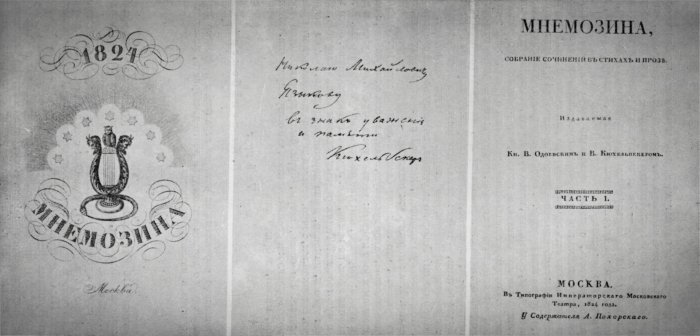 1824
МНЕМОЗИНА
Москва.
Николаю Михайловичу
Языкову
въ знакъ уваженія
и памяти
Кюхельбекеръ
МНЕМОЗИНА,
СОБРАНІЕ СОЧИНЕНІЙ ВЪ СТИХАХЪ И ПРОЗѢ.
Издаваемая
Кн. В. Одоевскимъ и В. Кюхельбекеромъ.
ЧАСТЬ I.
МОСКВА.
Въ Типографіи Императорскаго Московскаго
Театра, 1824 года.
У Содержателя А. Похорскаго.